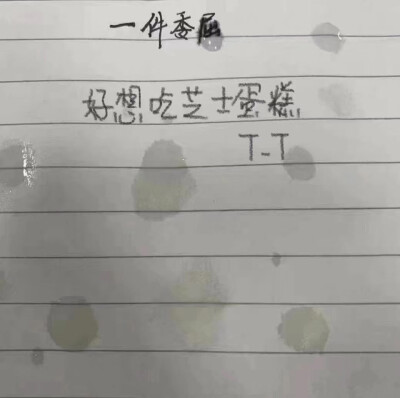 一件委屈
好想吃芝士蛋糕
T-T